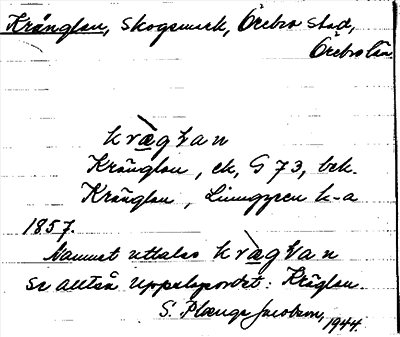 Kränglan, Skogsmark, Örebro stad,
Örebro län
kræglan
Kränglan, ek, G 73, bek.
Kränglan, Ljunggren k-a
1857.
Namnet uttalas kræglan
se alltså Uppslagsordet: Kräglan.
S. Plænge Jacobson, 1944.